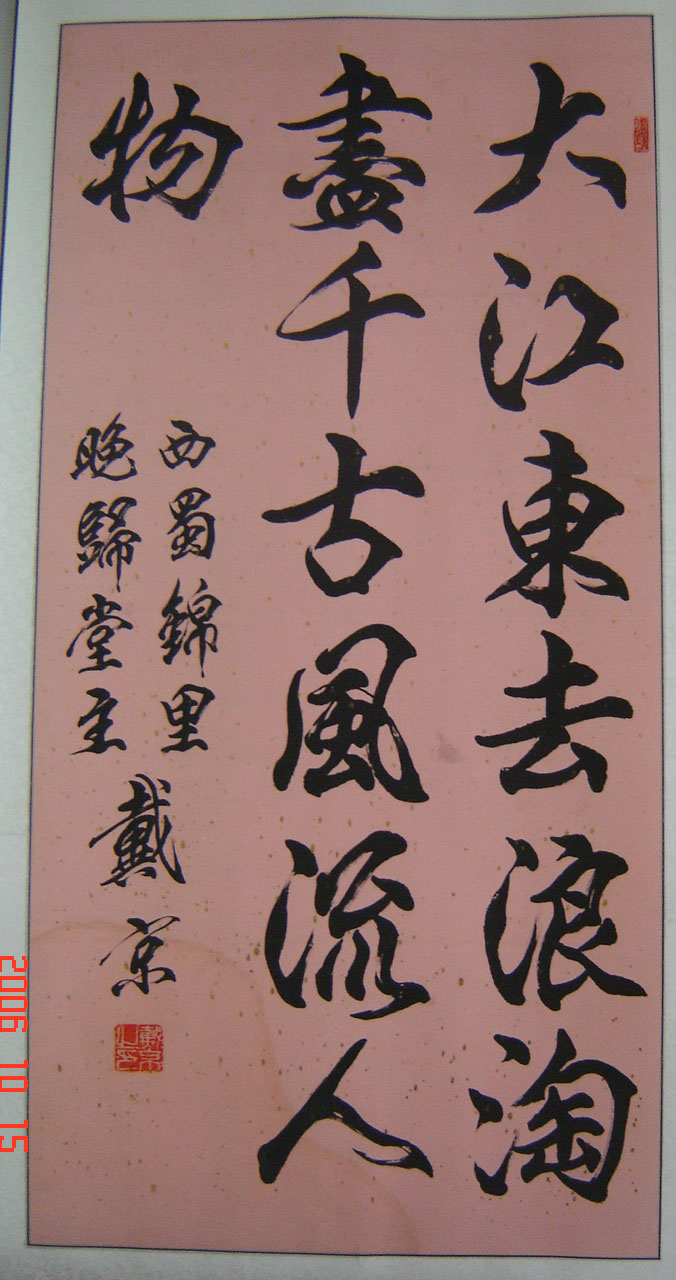 大江東去浪淘
盡千古風流人
物
西蜀錦里
晚歸堂主
戴京
2006 10 15